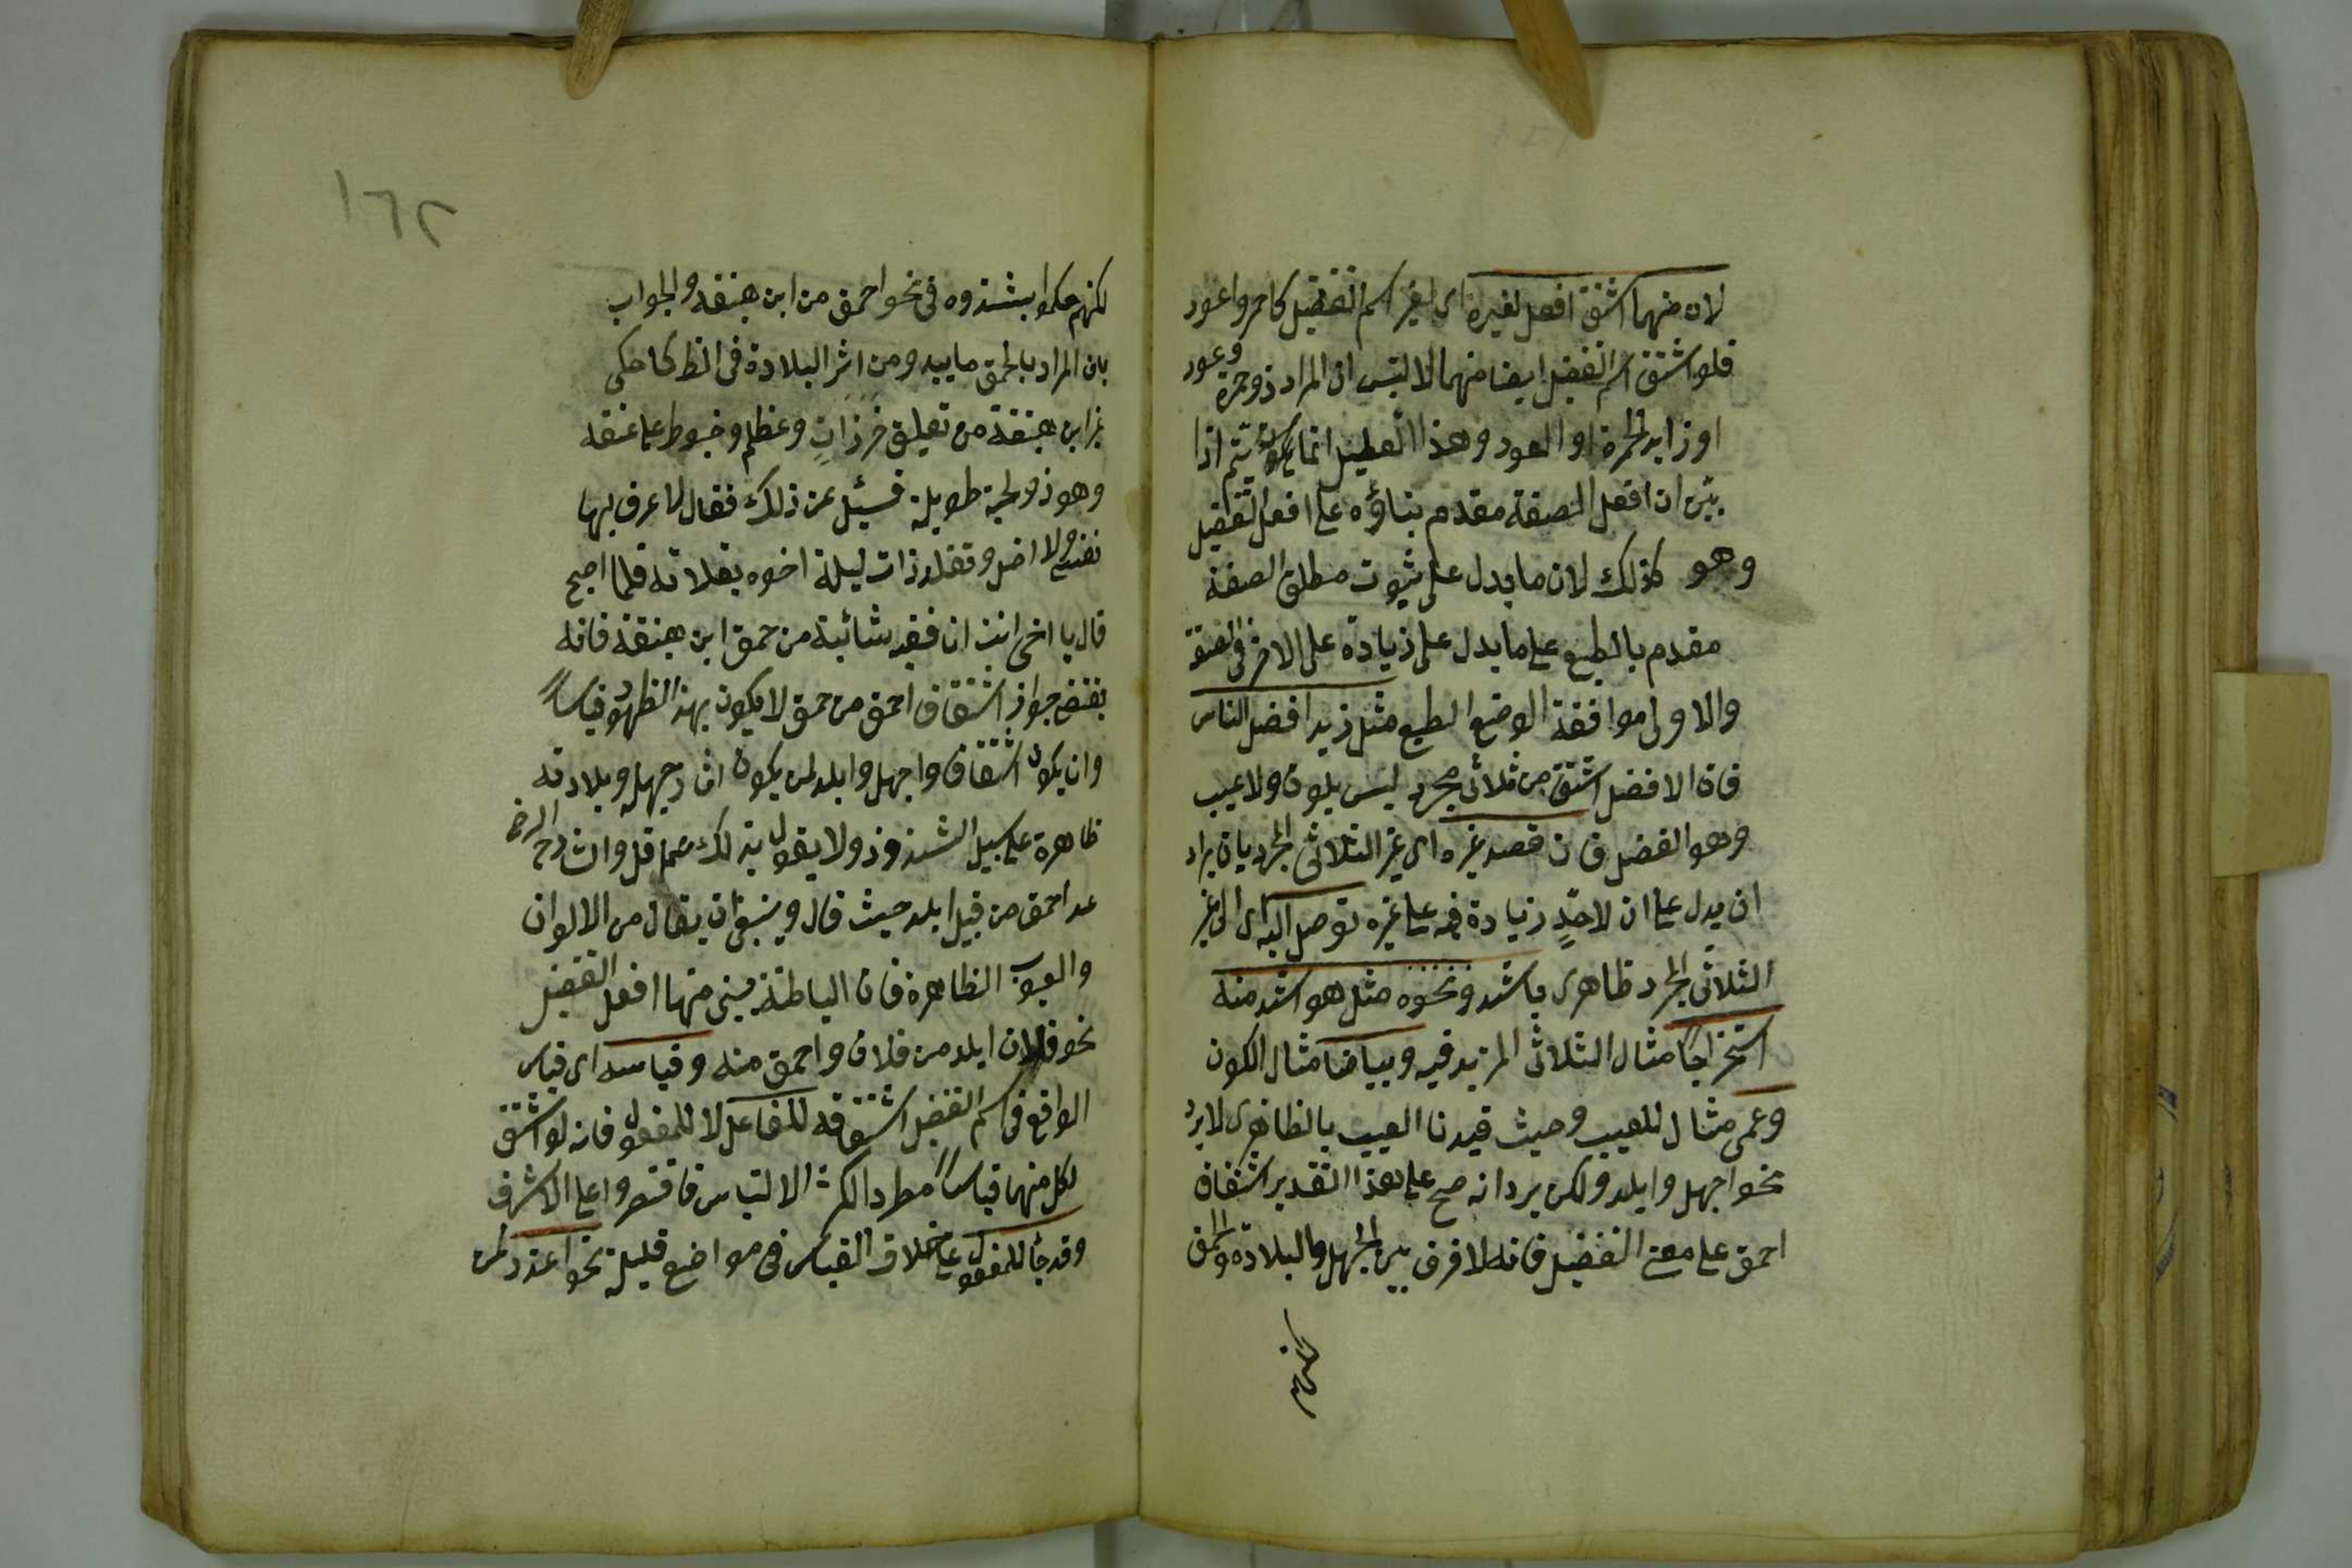 لان منهما اشتق افعل لغيره اى لغير اسم التفضيل كاحمر واعور
فلو اشتق اسم التفضيل ايضا منهما لالتبس ان المراد ذو حمرة وعور
او زايد الحمرة او العور وهذا التعليل انما يتم اذا
بيّن ان افعل الصفة مقدم بناؤه على افعل التفضيل
وهو كذلك لان ما يدل على ثبوت مطلق الصفة
مقدم بالطبع على ما يدل على زيادة على الاخر فى الصفة
والاولى موافقة الوضع الطبع مثل زيد افضل الناس
فان الافضل اشتق من ثلاثى مجرد ليس بلون ولا عيب
وهو الفضل فان قصد غيره اى غير الثلاثى المجرد بان يراد
ان يدل على ان لاحدٍ زيادة فيه على غيره توصل اليه اى الى غير
الثلاثى المجرد ظاهرى باشد ونحوه مثل هو اشد منه
استخراجًا مثال الثلاثى المزيد فيه وبياضا مثال الكون
وعمى مثال للعيب وحيث قيدنا العيب بالظاهرى لا يرد
نحو اجهل وابلد ولكن يرد انه صح على هذا التقدير اشتقاق
احمق على معنى التفضيل فانه لا فرق بين الجهل والبلادة والحمق
لكنهم
لكنهم حكموا بشذوه فى نحو احمق من ابن هبنقه والجواب
بان المراد بالحمق ما يبدو من اثر البلادة فى الظ كما حكى
عن ابن هبنقة من تعليق خرزاتٍ وعظم وخيوط على عنقه
وهو ذو لحية طويلة فسئل عن ذلك فقال لاعرف بها
نفسى ولا اضل وتقلد ذات ليلة اخوه بقلادته فلما اصبح
قال يا اخى انت انا ففيه شائبة من حمق ابن هبنقة فانه
يقتضى جواز اشتقاق احمق من حمق لا يكون بهذ الظهور قياسًا
وان يكون اشتقاق واجهل وابلد لمن يكون اثار جهله وبلادته
ظاهرة على سبيل الشذوذ ولا يقول بذلك عاقل والشارح الرضى
عد احمق من قبيل ابلد حيث قال وينبغى ان يقال من الالوان
والعيوب الظاهرة فان الباطنة يبنى منها افعل التفضيل
نحو فلان ابلد من فلان واحمق منه وقياسه اى قياس
الواقع فى اسم التفضيل اشتقاقه للفاعل لا للمفعول فانه لو اشتق
لكل منهما قياسًا مطردا لكثر الالتباس فاقتصروا على الاشرف
وقد جاء للمفعول على خلاف القياس فى مواضع قليلة نحو اعذر لمن